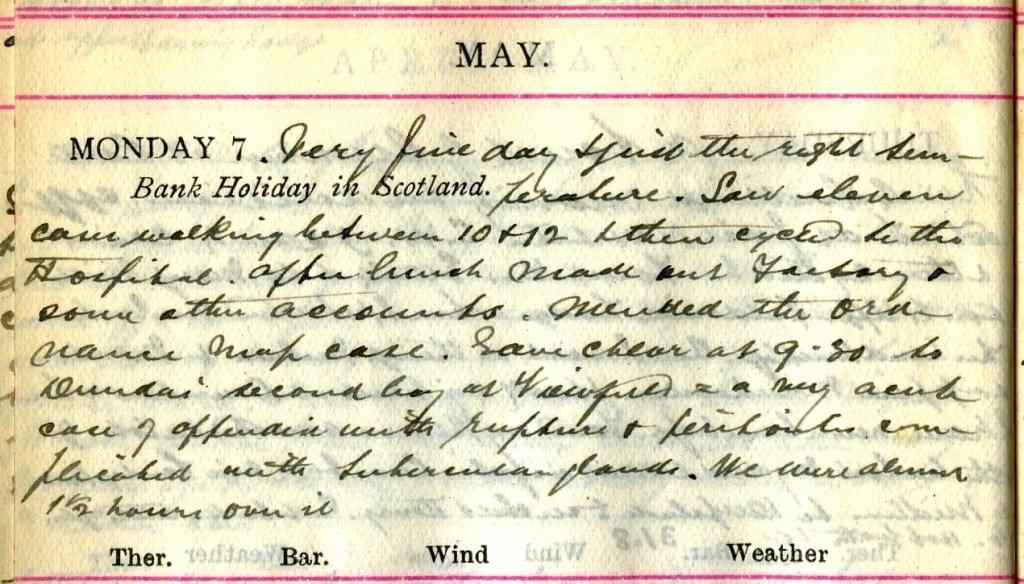 MAY.
MONDAY 7. Very fine day & just the right tem-
Bank Holiday in Scotland. perature. Saw eleven
cases walking between 10 & 12 & then cycled to the
Hospital. After lunch made out Factory &
some other accounts. Mended the ord-
nance map case. Gave chlor at 9-30 to
Dundas' second boy at Viewfield = a very acute
case of appendix with rupture & peritonitis com-
plicated with tubercular glands. We were almost
1½ hours over it
Ther. Bar. Wind Weather